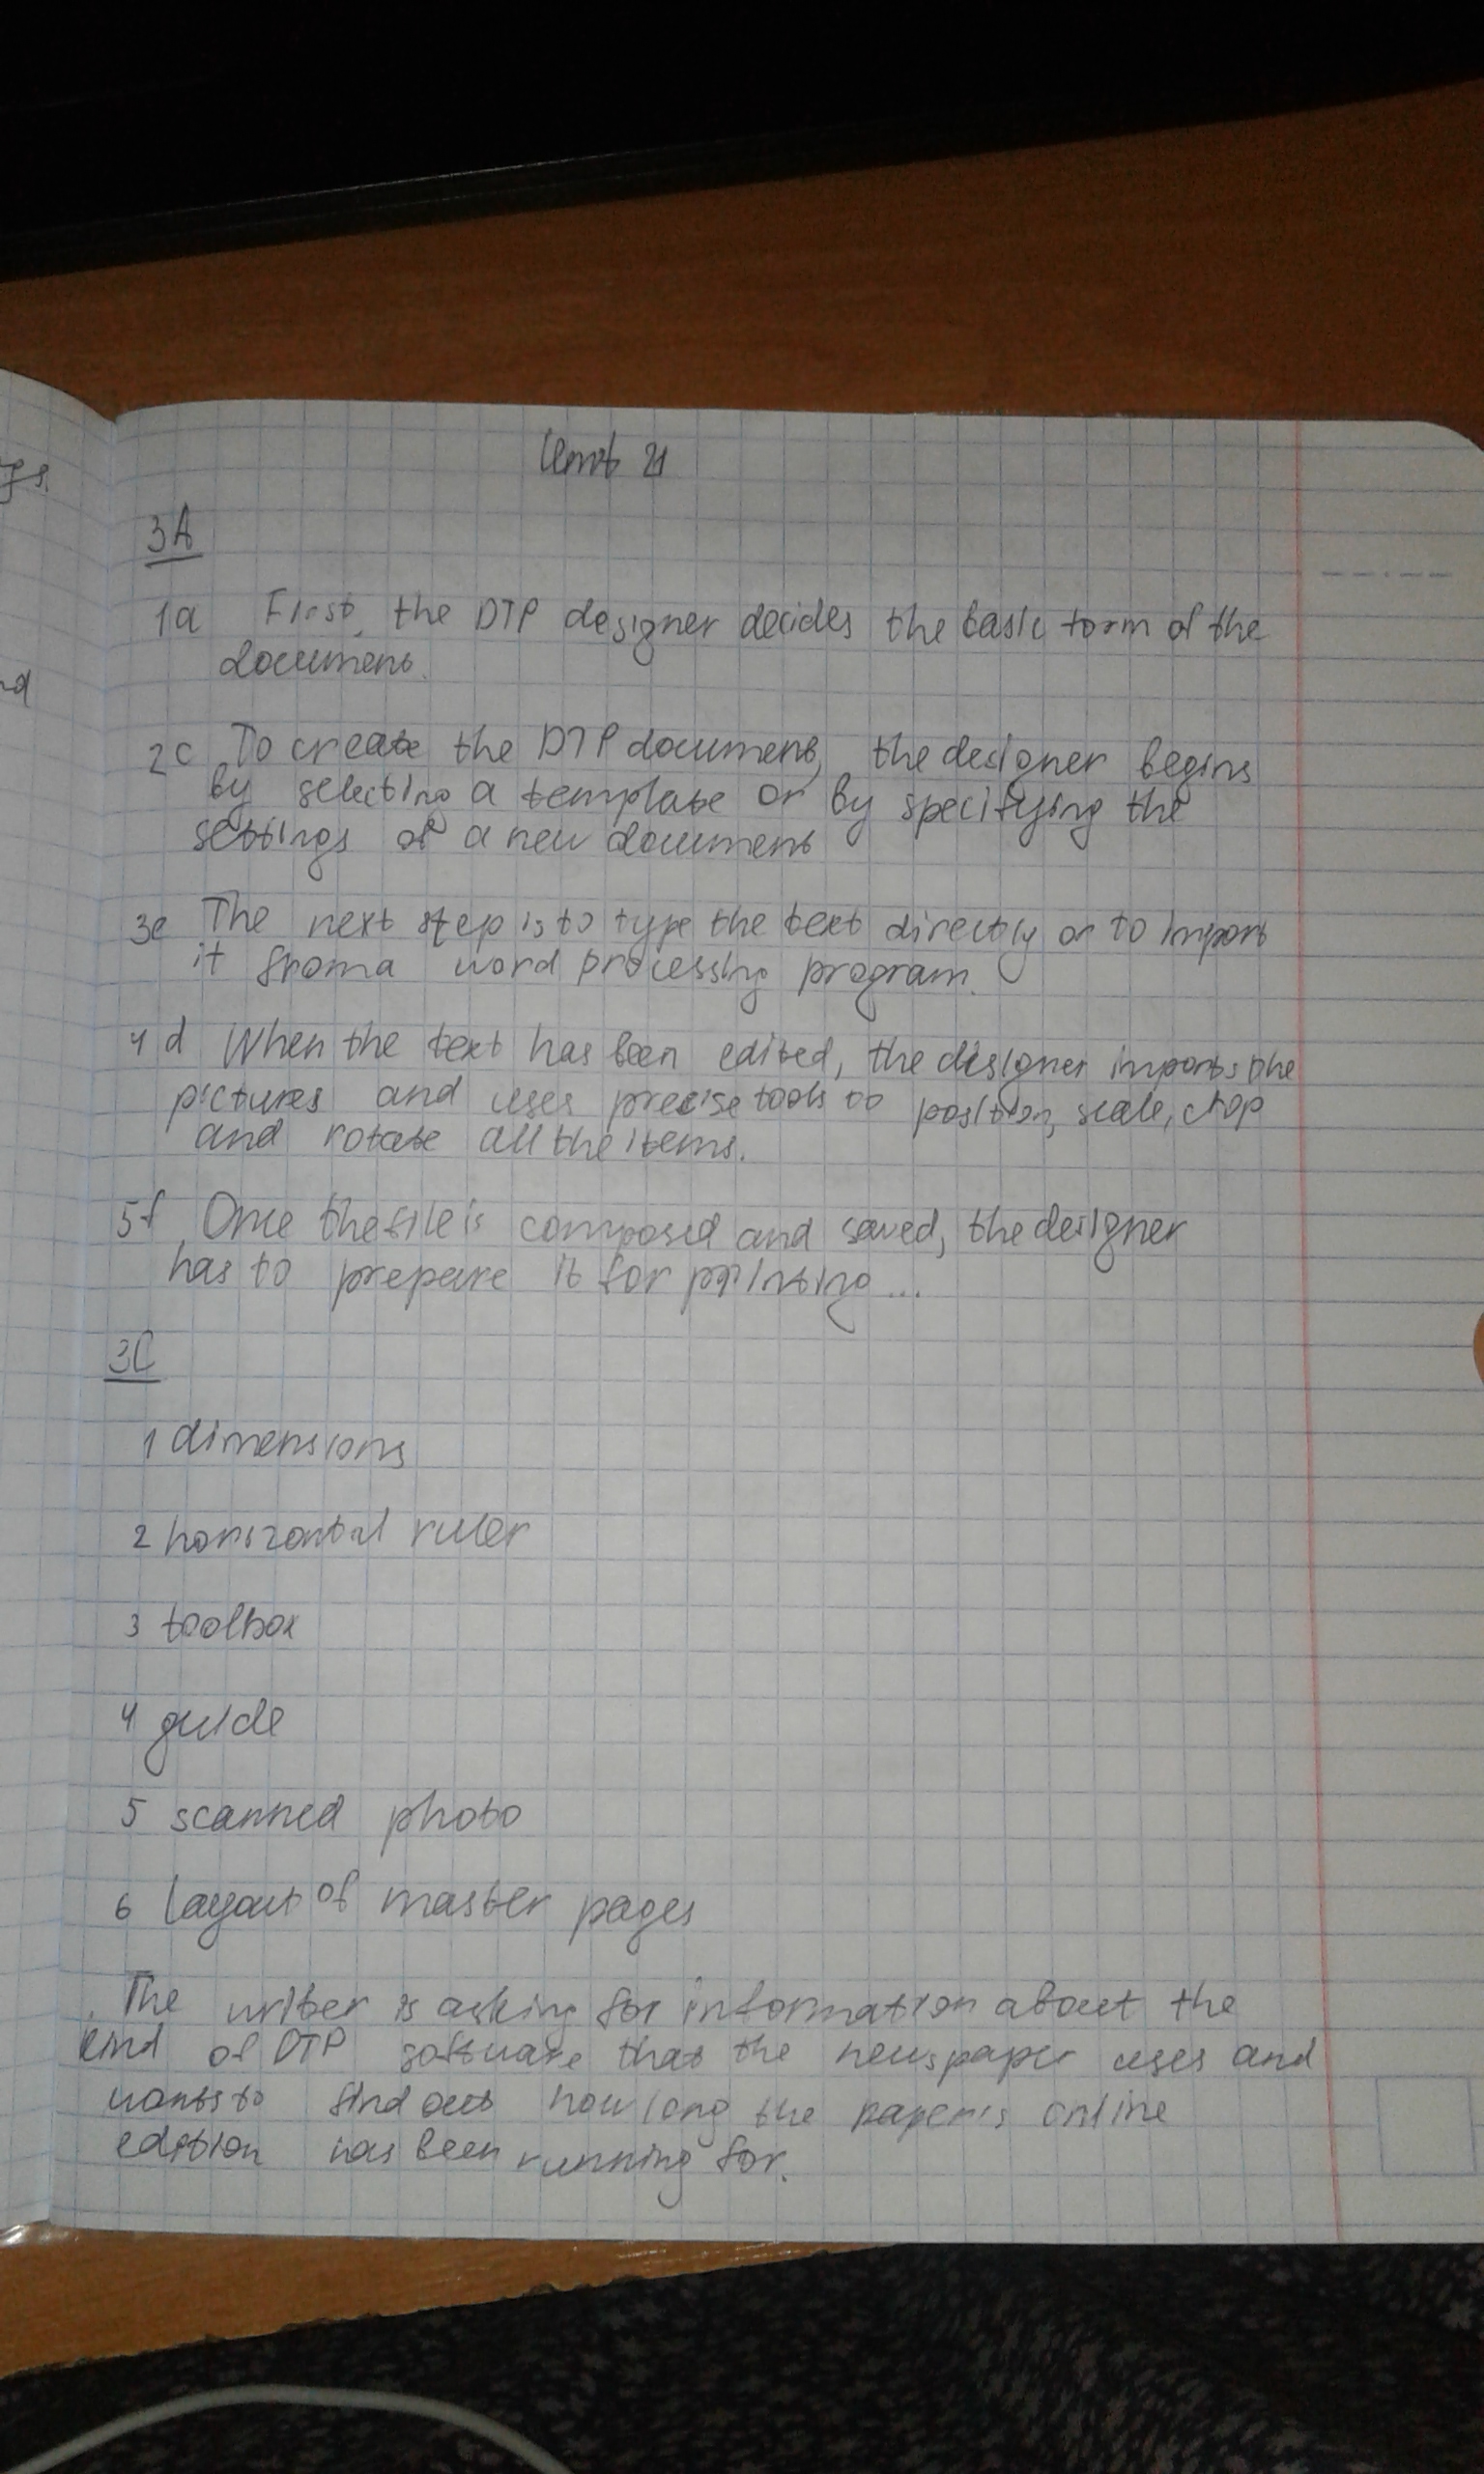 Unit 21
3A
1a First, the DTP designer decides the basic form of the
document.
2c To create the DTP document, the designer begins
by selecting a template or by specifying the
settings of a new document
3e The next step is to type the text directly or to import
it from a word processing program.
4d When the text has been edited, the designer imports the
pictures and uses precise tools to position, scale, crop
and rotate all the items.
5f Once the file is composed and saved, the designer
has to prepare it for printing...
3C
1 dimensions
2 horizontal ruler
3 toolbox
4 guide
5 scanned photo
6 layout of master pages
The writer is asking for information about the
kind of DTP software that the newspaper uses and
wants to find out how long the paper's online
edition has been running for.